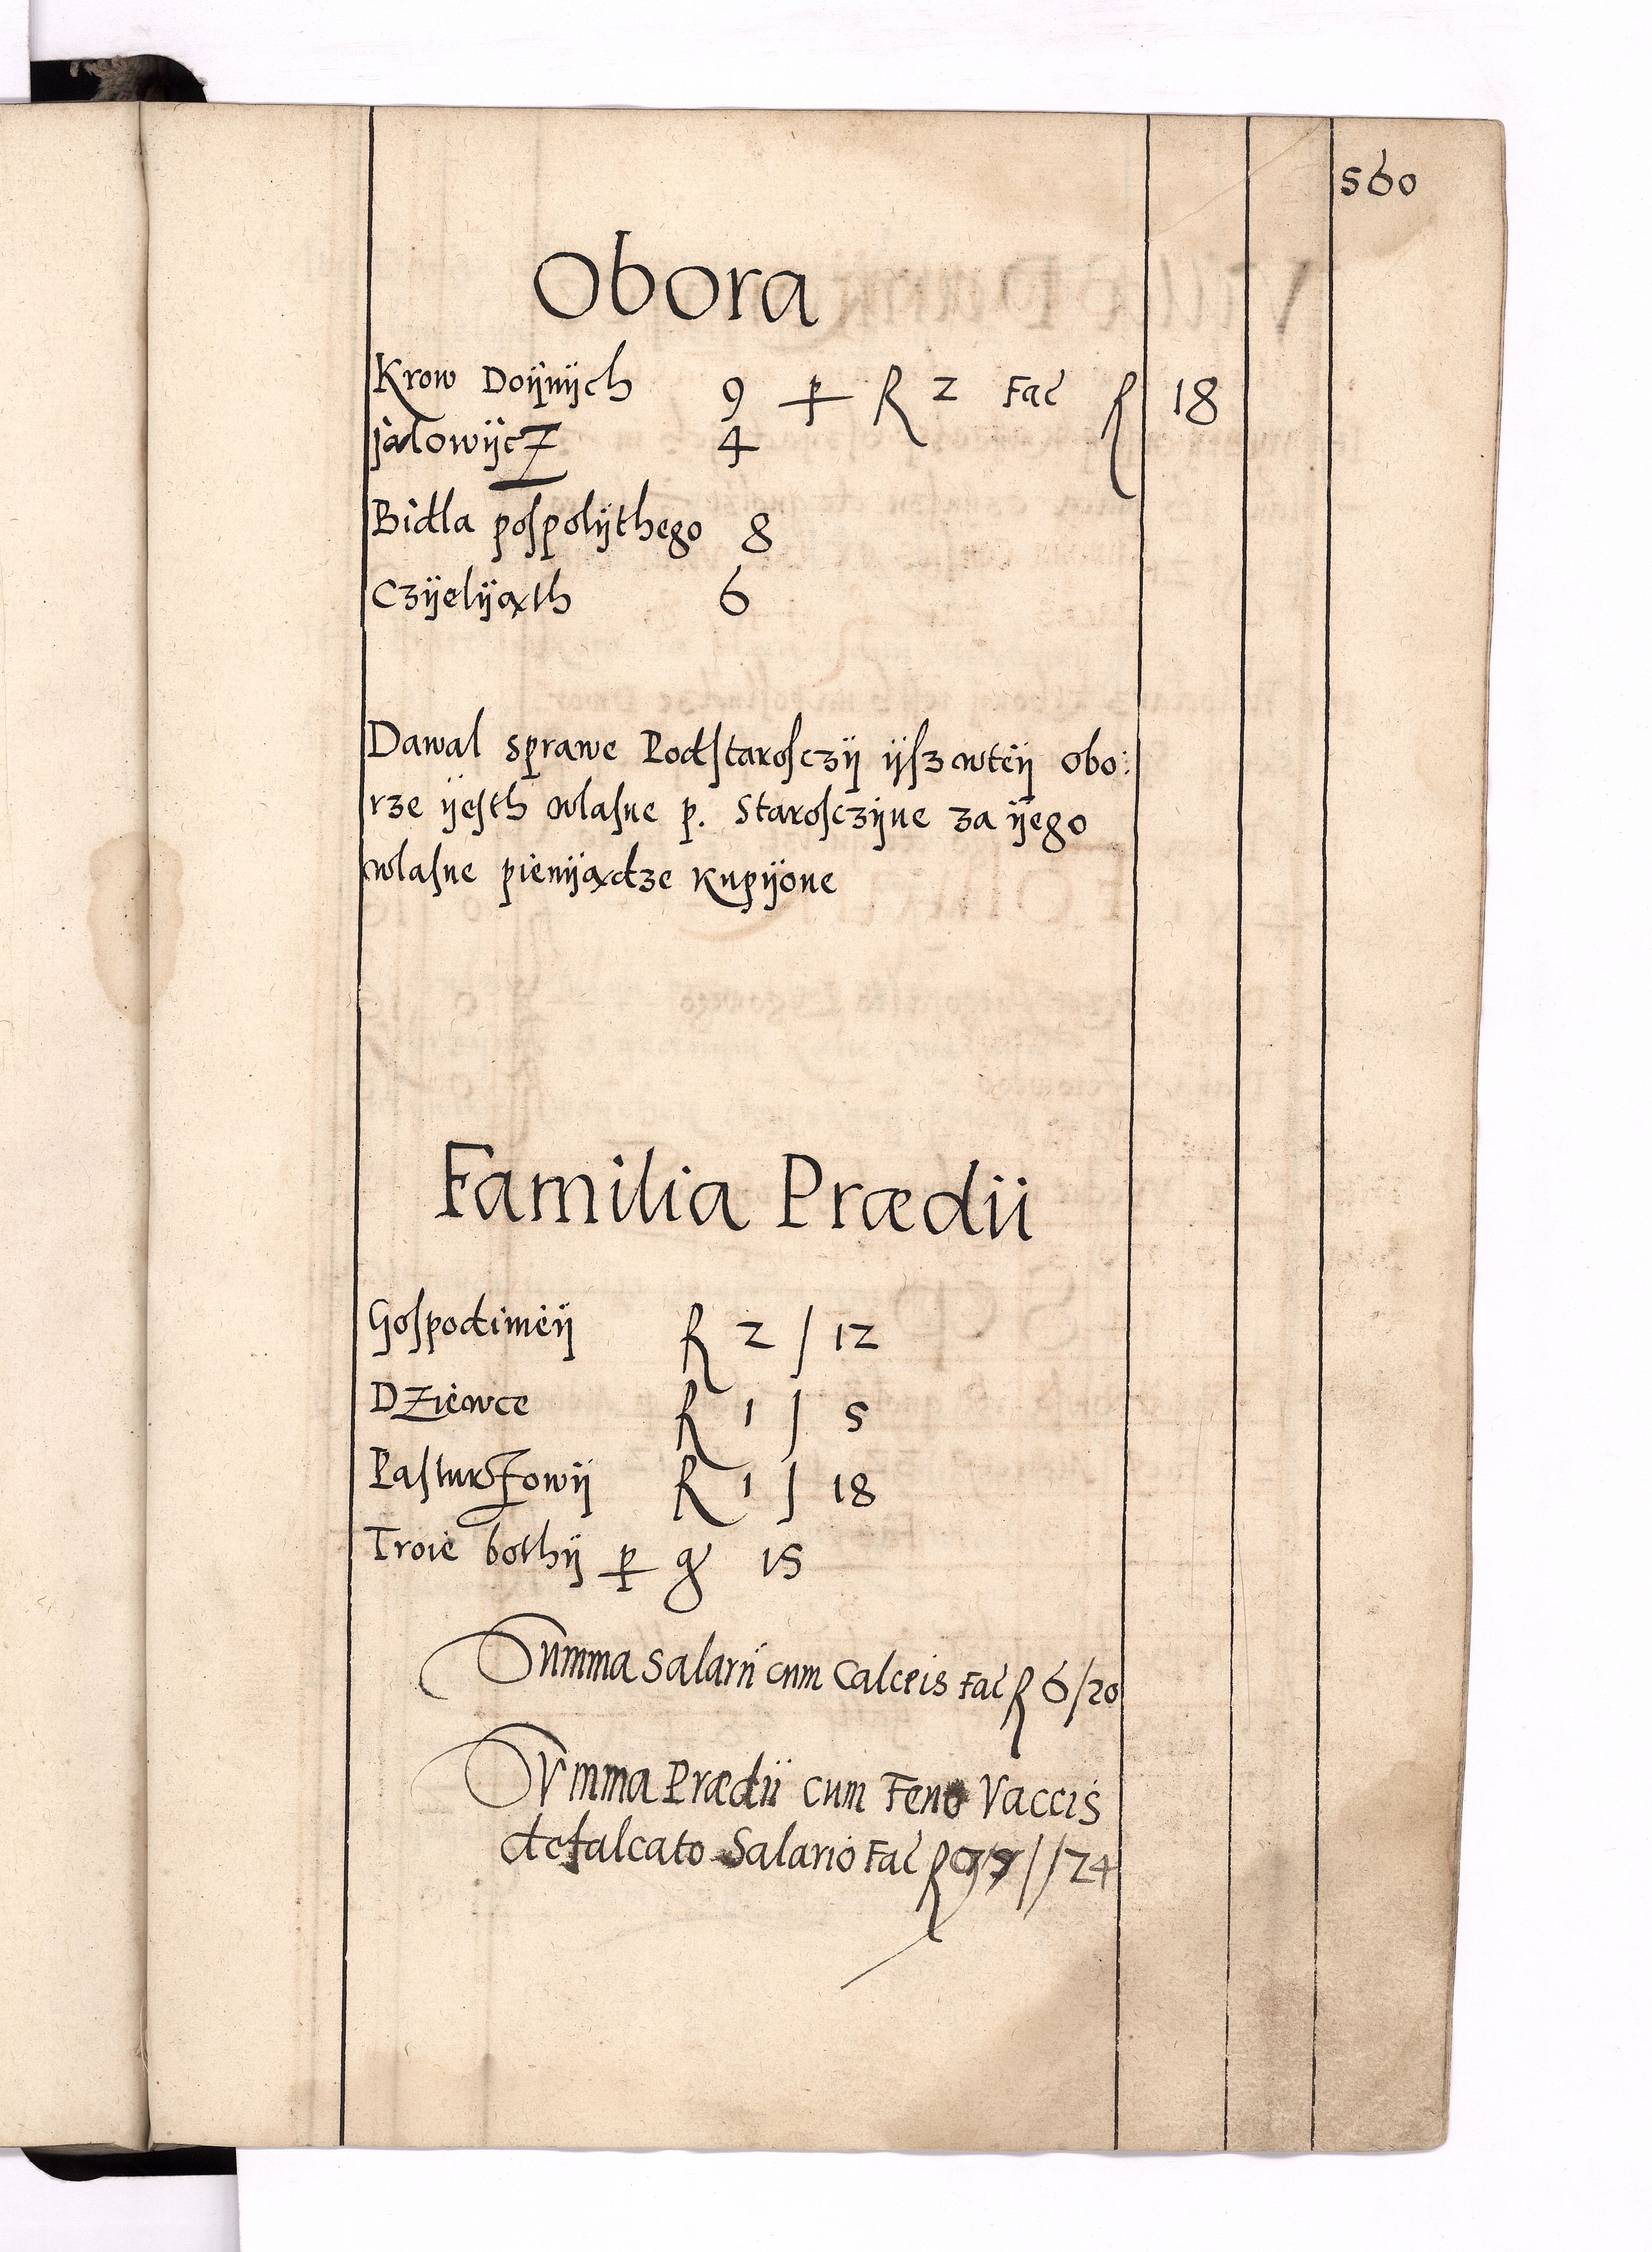 560
Obora
Krow Doijnijch 9 p R 2 Fac R 18
jalowijcz 4
Bidla pospolijthego 8
Czijelijąth 6
Dawal sprawe Podstarosczij ijsz wteij obo:
rze ijesth wlasne p. Starosczijne za ijego
wlasne pienijądze kupijone
Familia Prædii
Gospodinieij R 2 / 12
Dziewce R 1 / 5
Pasturzowij R 1 / 18
Troie bothij p g 15
Summa salarii cum Calceis Fac R 6/20
SVmma Prædii cum Feno Vaccis
defalcato Salario Fac R //24